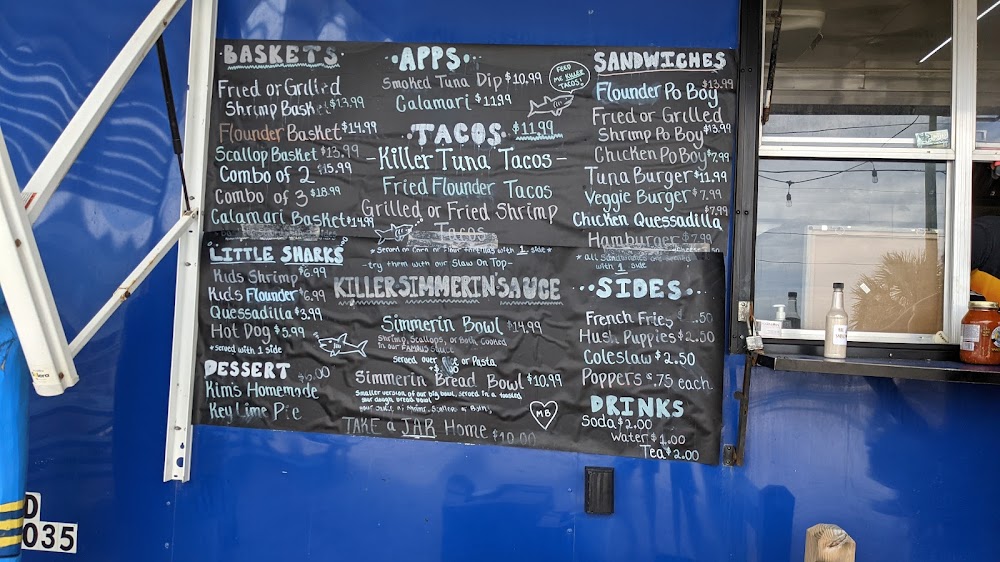 BASKETS
Fried or Grilled
Shrimp Basket $13.99
Flounder Basket $14.99
Scallop Basket $13.99
Combo of 2 $15.99
Combo of 3 $18.99
Calamari Basket $14.99
"LITTLE SHARKS"
Kids Shrimp $6.99
Kids Flounder $6.99
Quesadilla $3.99
Hot Dog $5.99
*served with 1 side
DESSERT
Kim's Homemade
Key Lime Pie
·APPS·
Smoked Tuna Dip $10.99
Calamari $11.99
FEED
ME KILLER
TACOS!
·TACOS· $11.99
-Killer Tuna Tacos-
Fried Flounder Tacos
Grilled or Fried Shrimp
Tacos
*Served on Corn or Flour Tortillas with 1 side*
-try them with our Slaw on Top-
KILLER SIMMERIN'SAUCE
Simmerin Bowl $14.99
Shrimp, Scallops, or Both, Cooked
in our FAMOUS Sauce
Served over Rice or Pasta
Simmerin Bread Bowl $10.99
Smaller version of our big bowl, served in a toasted
sour dough bread bowl
MB
TAKE a JAR Home $10.00
SANDWICHES
$13.99
Flounder Po Boy
Fried or Grilled
Shrimp Po Boy $13.99
Chicken Po Boy $7.99
Tuna Burger $11.99
Veggie Burger $7.99
Chicken Quessadilla $7.99
Hamburger $7.99
* all Sandwiches are served
with 1 side
···SIDES···
French Fries $2.50
Hush Puppies $2.50
Coleslaw $2.50
Poppers $.75 each
DRINKS
Soda $2.00
Water $1.00
Tea $2.00
D
035